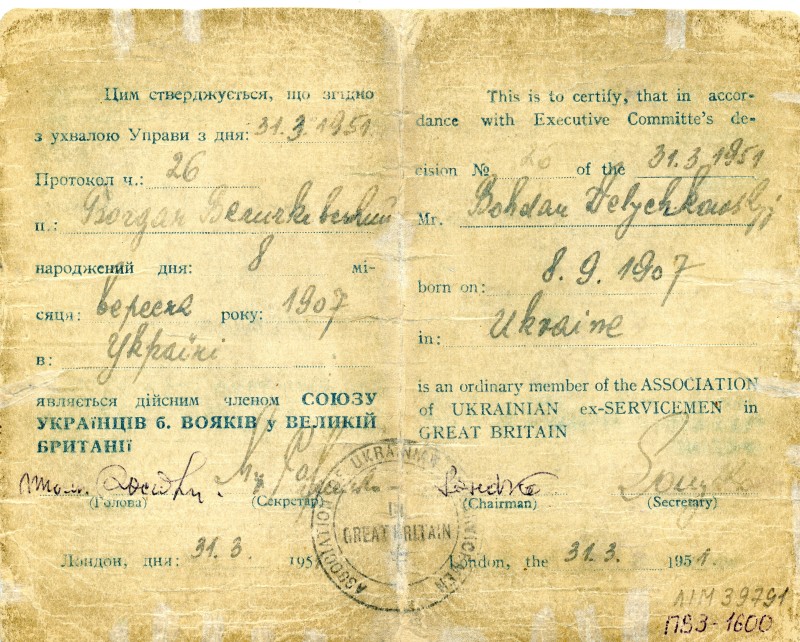 Цим стверджується, що згідно
з ухвалою Управи з дня: 31.3.1951
Протокол ч.: 26
п.: Богдан Величковський
народжений дня: 8 мі-
сяця: вересня року: 1907
в: Україні
являється дійсним членом СОЮЗУ
УКРАЇНЦІВ б. ВОЯКІВ у ВЕЛИКІЙ
БРИТАНІЇ
(Голова) (Секретар)
Лондон, дня: 31.3. 195
This is to certify, that in accor-
dance with Executive Committe's de-
cision № 26 of the 31.3.1951
Mr. Bohdan Welychkowskyj
born on: 8.9.1907
in: Ukraine
is an ordinary member of the ASSOCIATION
of UKRAINIAN ex-SERVICEMEN in
GREAT BRITAIN
(Chairman) (Secretary)
London, the 31.3. 1951.
ASSOCIATION OF UKRAINIAN
IN
GREAT BRITAIN
ЛІМ 39791
ПВЗ-1600